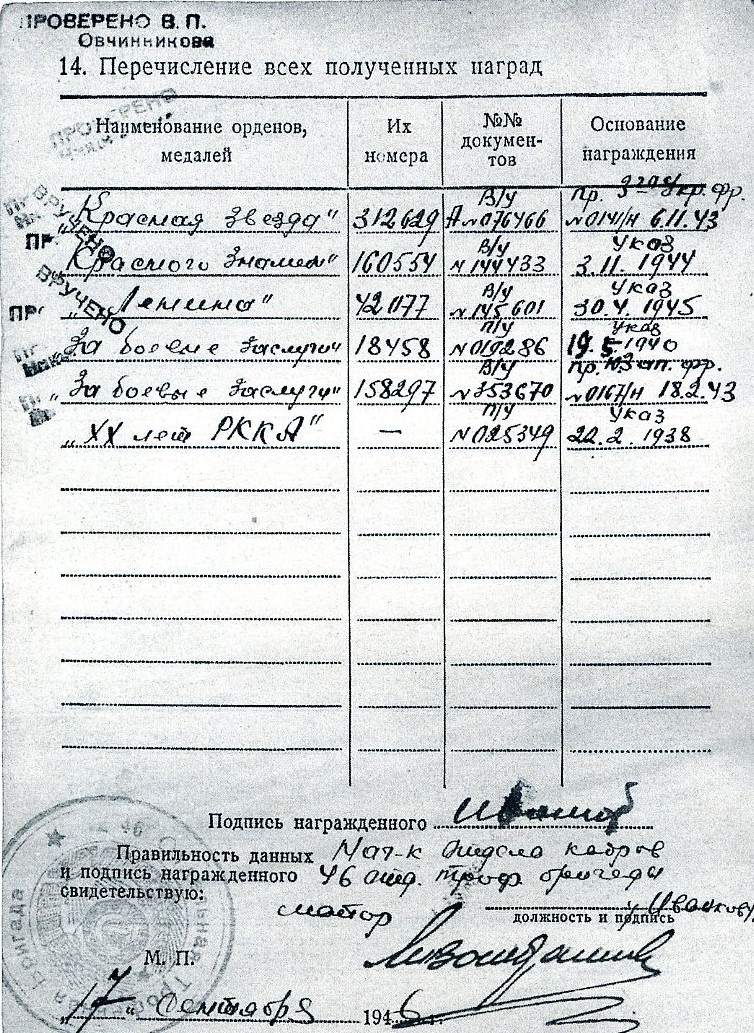 ПРОВЕРЕНО В. П.
Овчинникова
14. Перечисление всех полученных наград
ПРОВЕРЕНО
Наименование орденов, медалей
Их номера
№№ документов
Основание награждения
ВРУЧЕНО
„Красная Звезда" 312629 В/у А №076466 Пр. Укр. фр. №0141/н 6.11.43
„Красного Знамени" 160554 В/у №144433 Указ 3.11.1944
ВРУЧЕНО
„Ленина" 42077 В/у №145601 Указ 30.4.1945
„За боевые заслуги" 18458 П/у №019286 Указ 19.5.1940
„За боевые заслуги" 158297 В/у №353670 Пр. Юзап. фр. №0167/н 18.2.43
„XX лет РККА" — П/у №025349 Указ 22.2.1938
Подпись награжденного
Правильность данных Нач-к отдела кадров
и подпись награжденного 46 отд. троф бригады
свидетельствую:
майор
должность и подпись
М. П.
„17" Сентября 1946 г.